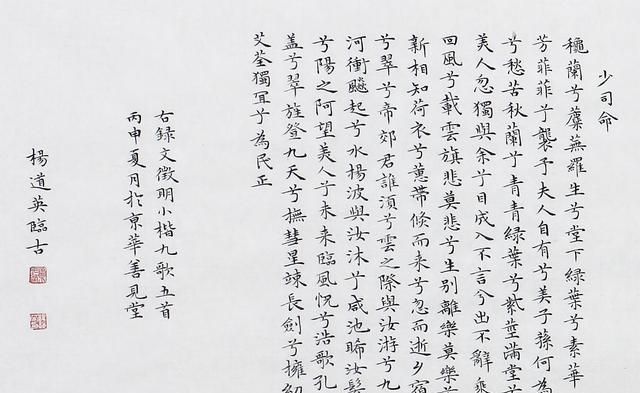 少司命
穐蘭兮蘪蕪羅生兮堂下綠葉兮素華
芳菲菲兮襲予夫人自有兮美子蓀何為
兮愁苦秋蘭兮青青綠葉兮紫莖滿堂兮
美人忽獨與余兮目成入不言兮出不辭乘
回風兮載雲旗悲莫悲兮生別離樂莫樂兮
新相知荷衣兮蕙帶倏而来兮忽而逝夕宿
兮翠兮帝郊君誰須兮雲之際與汝游兮九
河衝飈起兮水楊波與汝沐兮咸池晞汝髮
兮陽之阿望美人兮未来臨風怳兮浩歌孔
盖兮翠旌登九天兮撫彗星竦長劍兮擁幼
艾荃獨宜兮為民正
右録文徵明小楷九歌五首
丙申夏月於京華善見堂
楊道英臨古